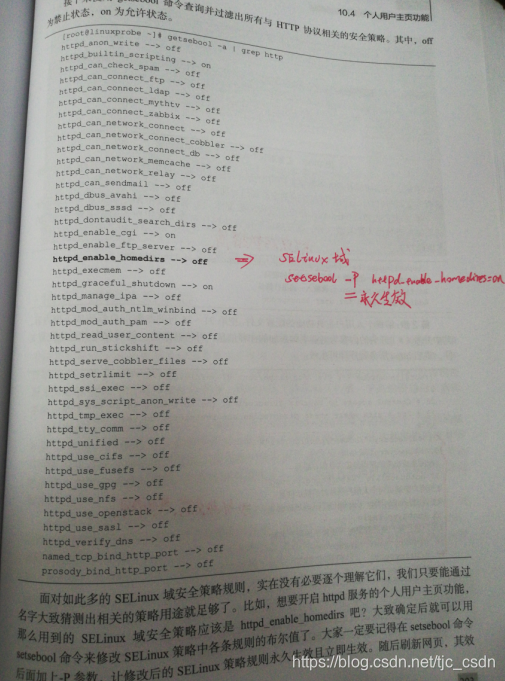 10.4 个人用户主页功能
命令查询并过滤出所有与 HTTP 协议相关的安全策略。其中，off
为禁止状态，on 为允许状态。
[root@linuxprobe ~]# getsebool -a | grep http
httpd_anon_write --> off
httpd_builtin_scripting --> on
httpd_can_check_spam --> off
httpd_can_connect_ftp --> off
httpd_can_connect_ldap --> off
httpd_can_connect_mythtv --> off
httpd_can_connect_zabbix --> off
httpd_can_network_connect --> off
httpd_can_network_connect_cobbler --> off
httpd_can_network_connect_db --> off
httpd_can_network_memcache --> off
httpd_can_network_relay --> off
httpd_can_sendmail --> off
httpd_dbus_avahi --> off
httpd_dbus_sssd --> off
httpd_dontaudit_search_dirs --> off
httpd_enable_cgi --> on
httpd_enable_ftp_server --> off
httpd_enable_homedirs --> off ⇒ SELinux 域
httpd_execmem --> off setsebool -P httpd_enable_homedirs=on
httpd_graceful_shutdown --> on = 永久生效
httpd_manage_ipa --> off
httpd_mod_auth_ntlm_winbind --> off
httpd_mod_auth_pam --> off
httpd_read_user_content --> off
httpd_run_stickshift --> off
httpd_serve_cobbler_files --> off
httpd_setrlimit --> off
httpd_ssi_exec --> off
httpd_sys_script_anon_write --> off
httpd_tmp_exec --> off
httpd_tty_comm --> off
httpd_unified --> off
httpd_use_cifs --> off
httpd_use_fusefs --> off
httpd_use_gpg --> off
httpd_use_nfs --> off
httpd_use_openstack --> off
httpd_use_sasl --> off
httpd_verify_dns --> off
named_tcp_bind_http_port --> off
prosody_bind_http_port --> off
面对如此多的 SELinux 域安全策略规则，实在没有必要逐个理解它们，我们只要能通过
名字大致猜测出相关的策略用途就足够了。比如，想要开启 httpd 服务的个人用户主页功能，
那么用到的 SELinux 域安全策略应该是 httpd_enable_homedirs 吧？大致确定后就可以用
setsebool 命令来修改 SELinux 策略中各条规则的布尔值了。大家一定要记得在 setsebool 命令
后面加上-P 参数，让修改后的 SELinux 策略规则永久生效且立即生效。随后刷新网页，其效
https://blog.csdn.net/tjc_csdn